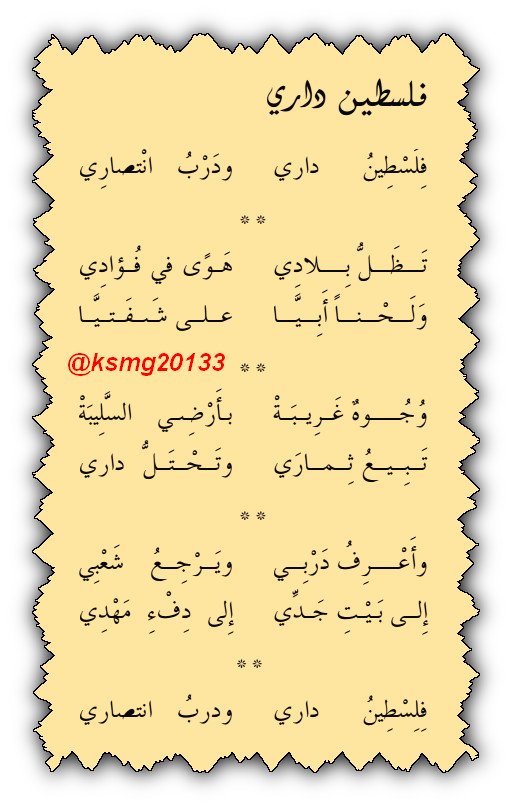 فلسطين داري
فِلَسْطِينُ داري ودَرْبُ انْتصارِي
**
تَـظَـلُّ بِـلادِي هَـوًى في فُـؤادِي
وَلَـحْـنـاً أَبِـيَّـا عـلـى شَـفَـتـيَّـا
@ksmg20133
**
وُجُـوهٌ غَـرِيـبَـةْ بـأَرْضِـي السَّلِيبَةْ
تَـبِـيـعُ ثِـمـارَي وتَـحْـتَـلُّ داري
**
وأَعْـرِفُ دَرْبِـي ويَـرْجِـعُ شَعْبِي
إِلـى بَـيْـتِ جَـدِّي إِلى دِفْءِ مَهْدِي
**
فِلِسْطِينُ داري ودربُ انتصاري